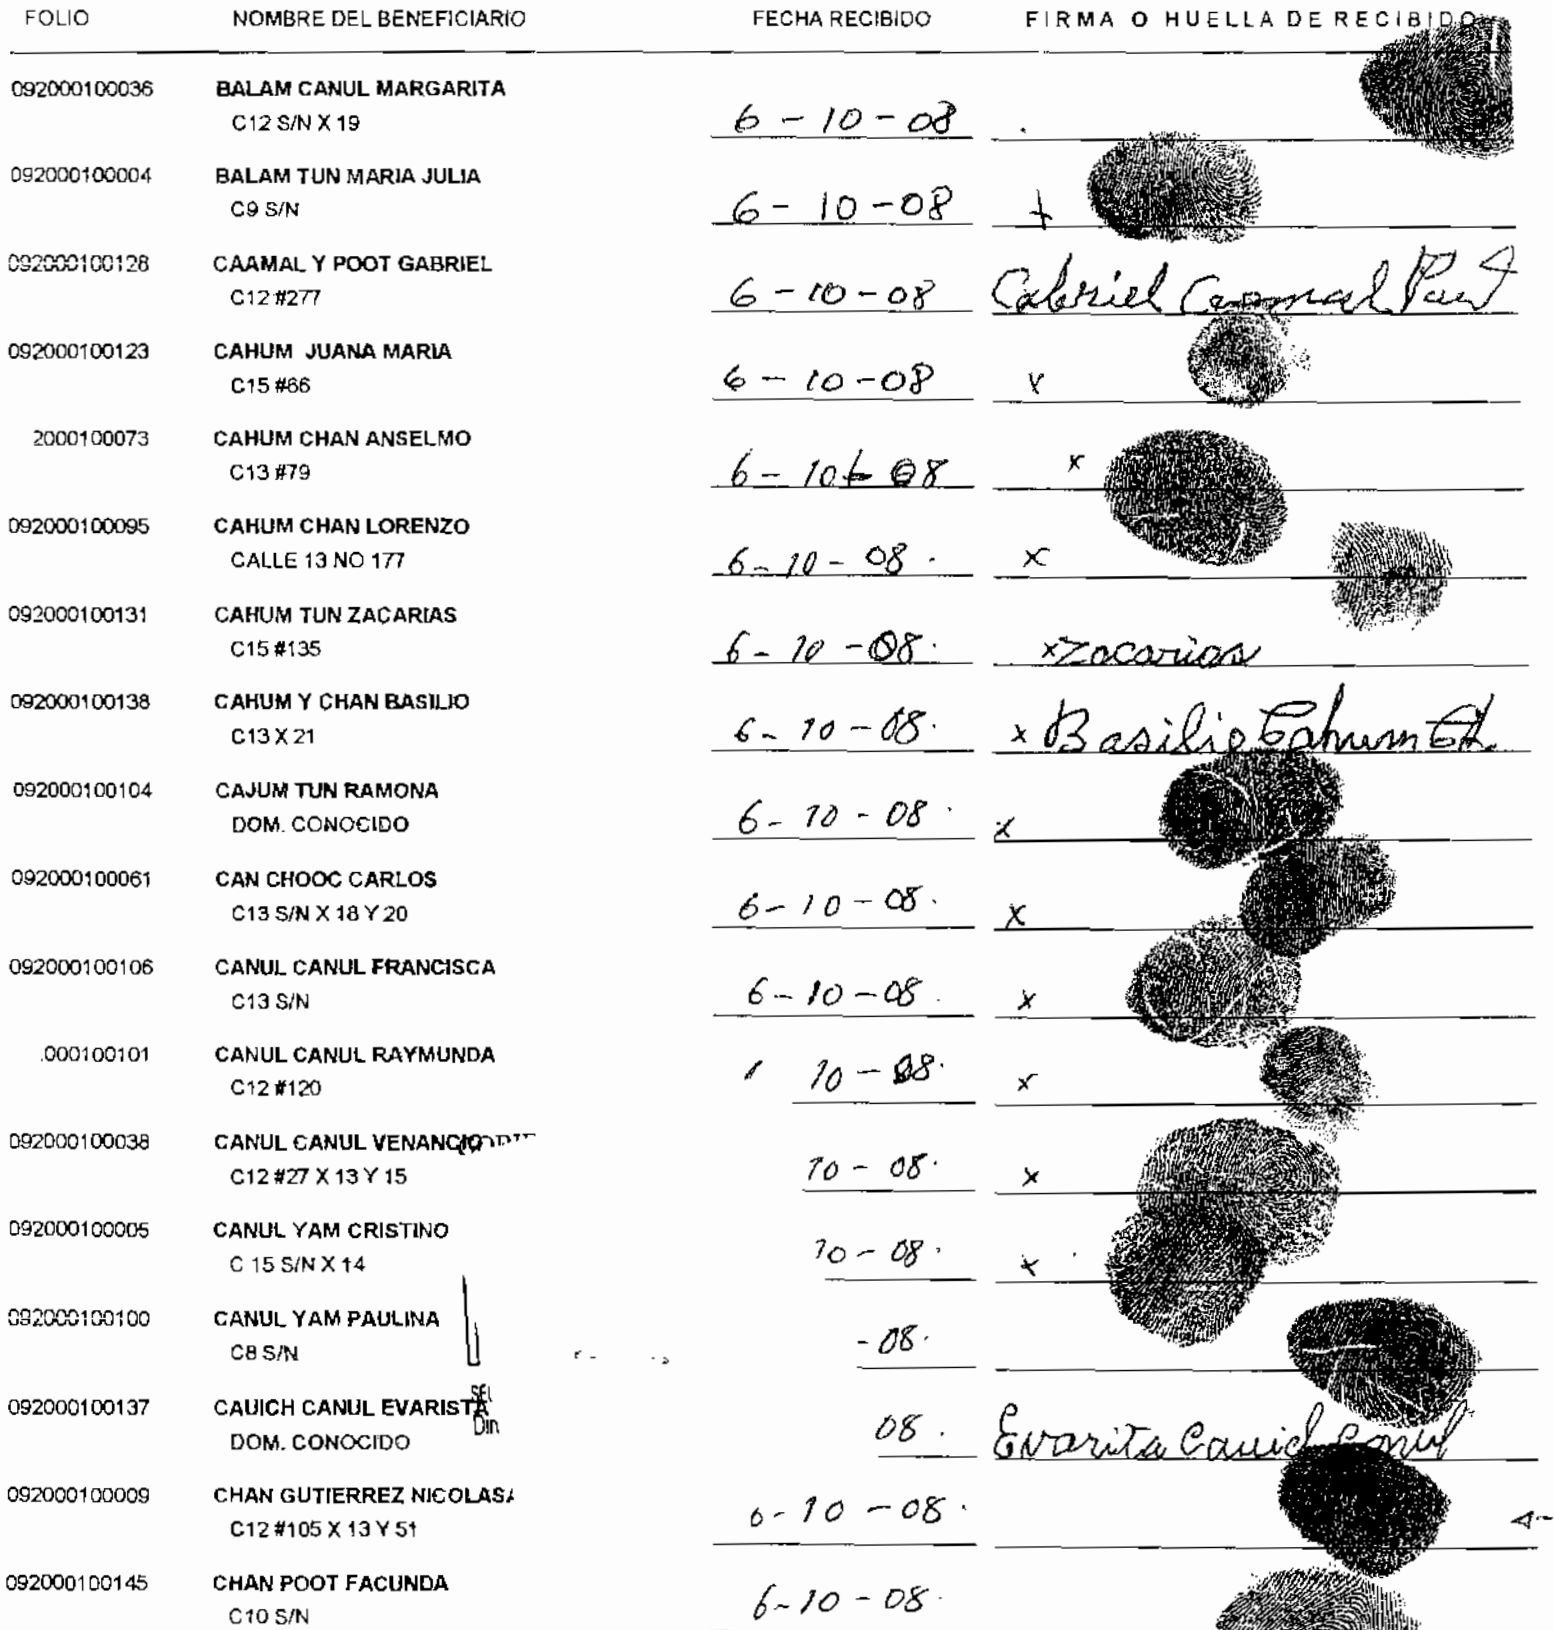 FOLIO NOMBRE DEL BENEFICIARIO FECHA RECIBIDO FIRMA O HUELLA DE RECIBIDO
092000100036 BALAM CANUL MARGARITA
C12 S/N X 19 6-10-08
092000100004 BALAM TUN MARIA JULIA
C9 S/N 6-10-08
092000100128 CAAMAL Y POOT GABRIEL
C12 #277 6-10-08 Gabriel Caamal
092000100123 CAHUM JUANA MARIA
C15 #66 6-10-08 x
2000100073 CAHUM CHAN ANSELMO
C13 #79 6-10-08 x
092000100095 CAHUM CHAN LORENZO
CALLE 13 NO 177 6-10-08. x
092000100131 CAHUM TUN ZACARIAS
C15 #135 6-10-08. x Zacarias
092000100138 CAHUM Y CHAN BASILIO
C13 X 21 6-10-08. x Basilio Cahum Ch.
092000100104 CAJUM TUN RAMONA
DOM. CONOCIDO 6-10-08. x
092000100061 CAN CHOOC CARLOS
C13 S/N X 18 Y 20 6-10-08. x
092000100106 CANUL CANUL FRANCISCA
C13 S/N 6-10-08. x
000100101 CANUL CANUL RAYMUNDA
C12 #120 10-08. x
092000100038 CANUL CANUL VENANCIO
C12 #27 X 13 Y 15 10-08. x
092000100005 CANUL YAM CRISTINO
C 15 S/N X 14 10-08. x
092000100100 CANUL YAM PAULINA
C8 S/N -08.
092000100137 CAUICH CANUL EVARISTA
DOM. CONOCIDO 08. Evarita Cauich Canul
092000100009 CHAN GUTIERREZ NICOLASA
C12 #105 X 13 Y 51 6-10-08.
092000100145 CHAN POOT FACUNDA
C10 S/N 6-10-08.